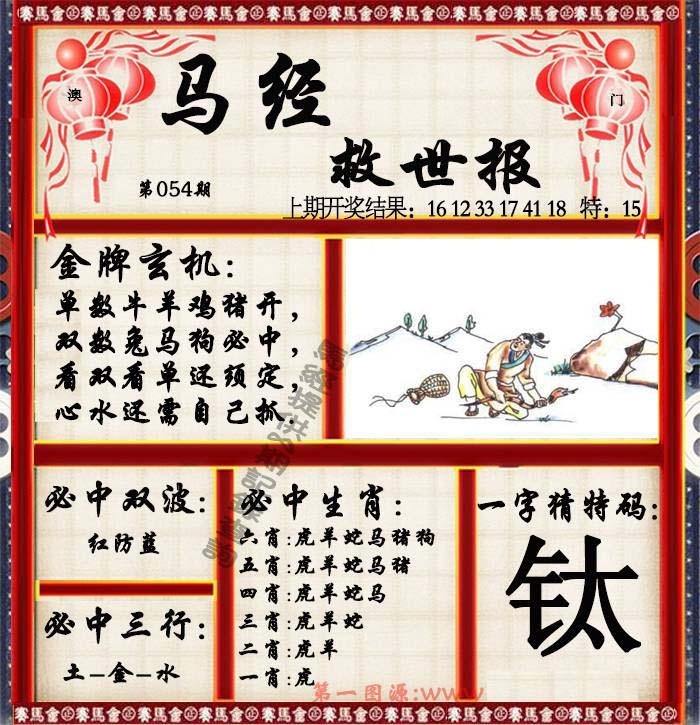 賽馬會 正 賽馬會 正 賽馬會 正 賽馬會
澳 门
马经
救世报
第054期
上期开奖结果：16 12 33 17 41 18 特：15
金牌玄机：
单数牛羊鸡猪开，
双数兔马狗必中，
看双看单还须定，
心水还需自己抓．
必中双波：
红防蓝
必中三行：
土-金-水
必中生肖：
六肖:虎羊蛇马猪狗
五肖:虎羊蛇马猪
四肖:虎羊蛇马
三肖:虎羊蛇
二肖:虎羊
一肖:虎
一字猜特码：
钛
第一图源:www